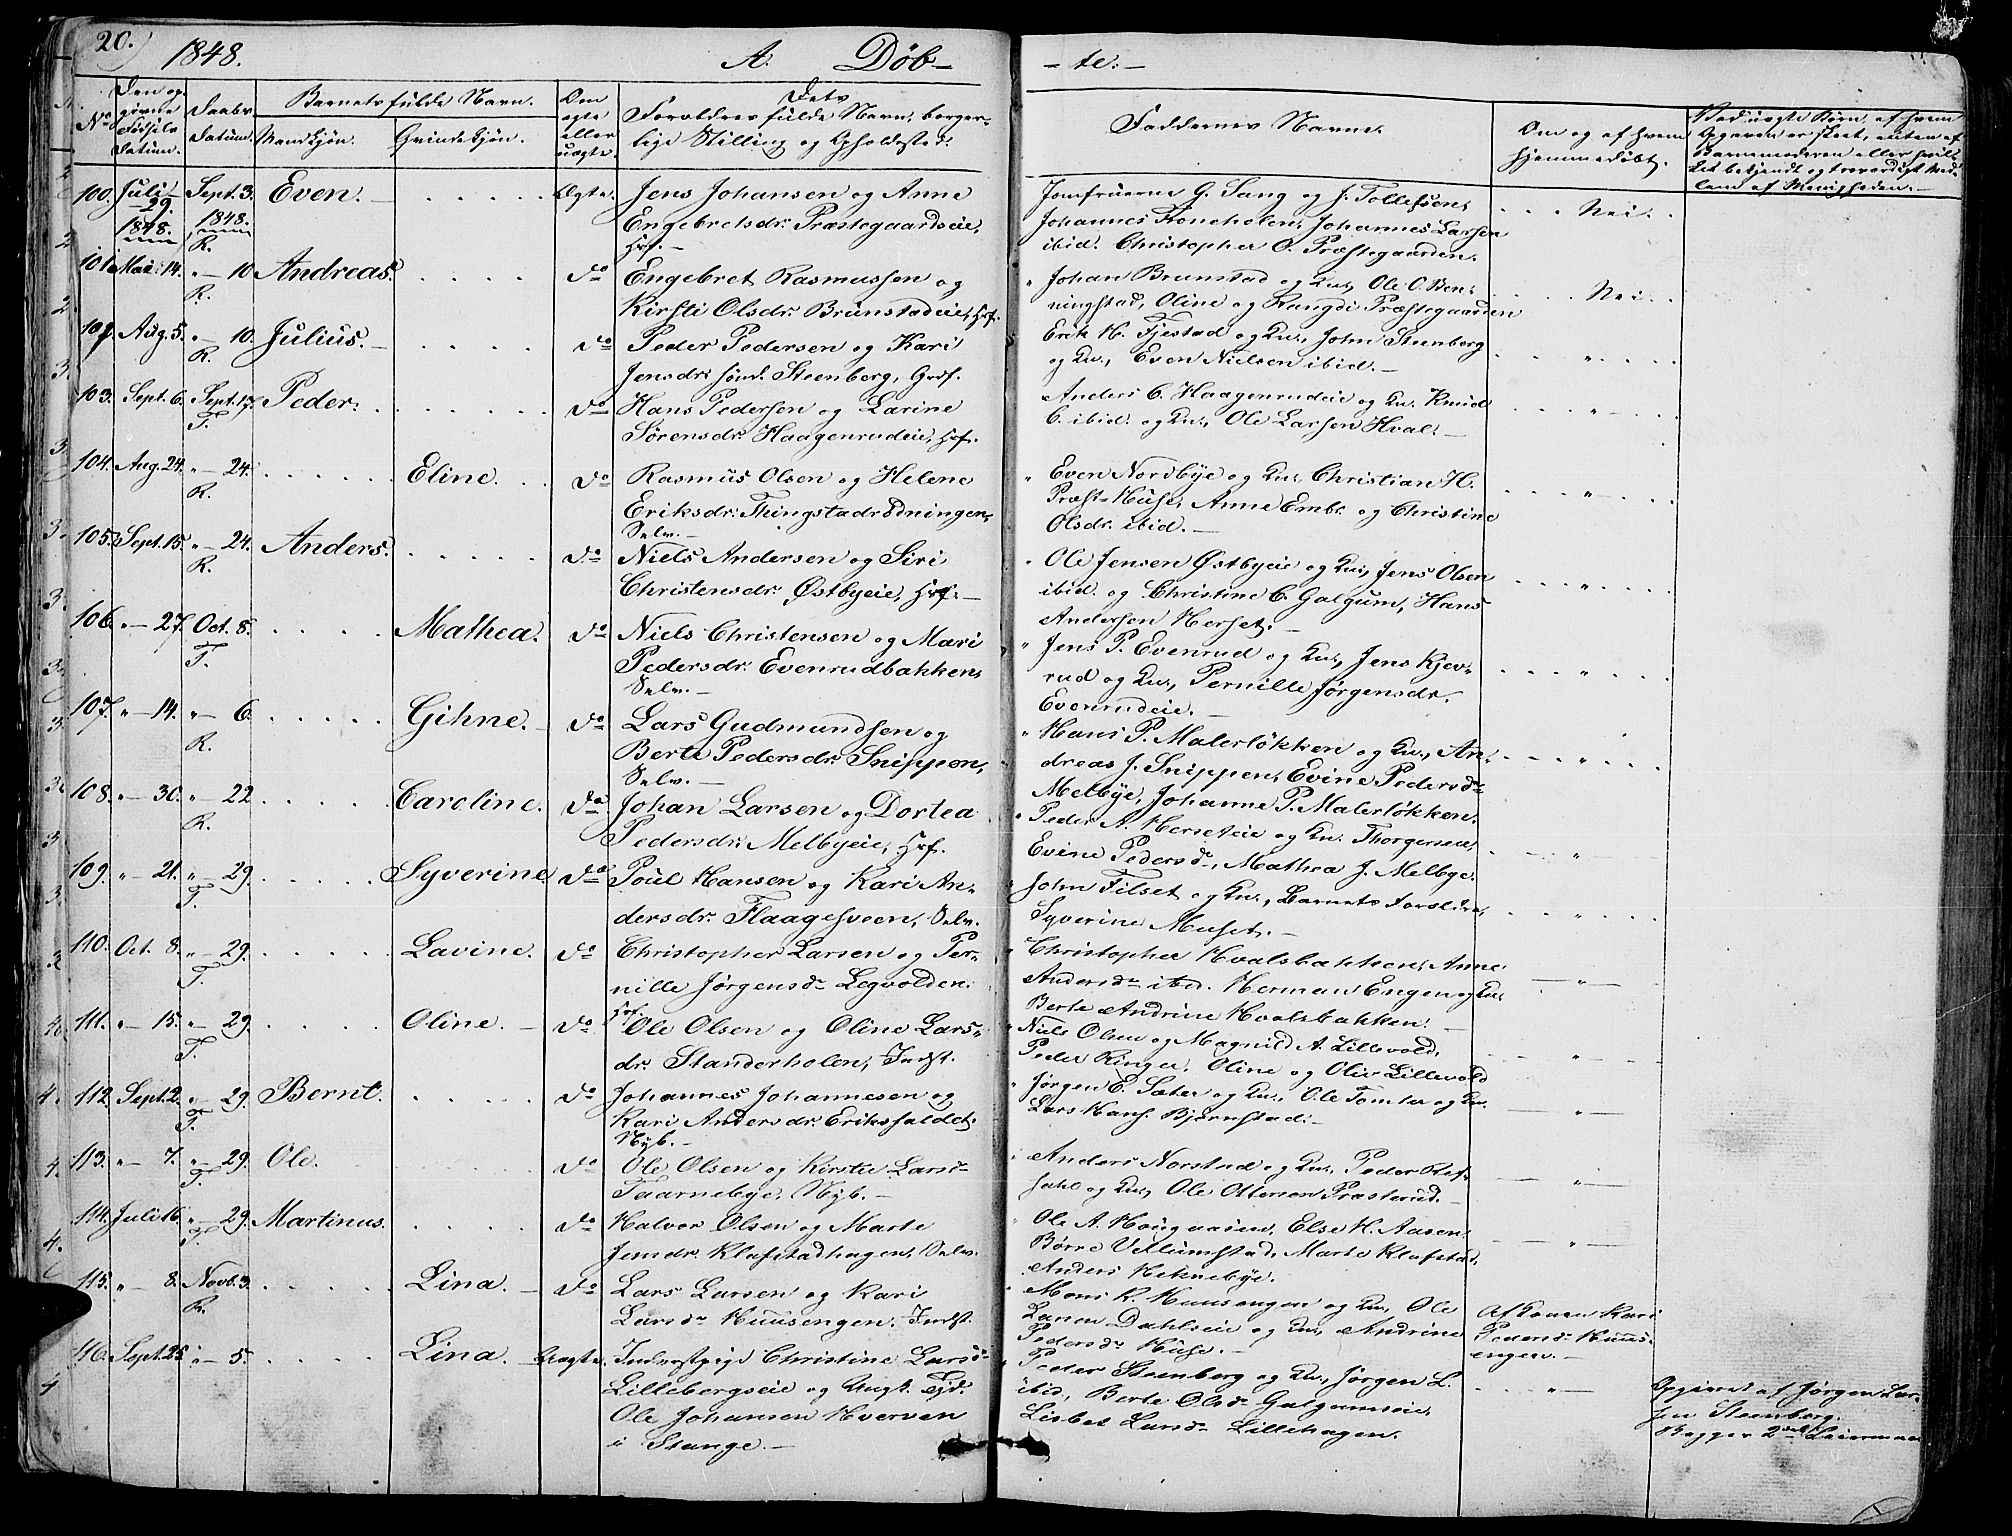 20.
1848.
A. Døb-
- te. -
No
Den op-
givne
Fødsels
Datum.
Daabs
Datum.
Barnets fulde Navn.
Mandkjøn.
Qvindekjøn.
Om
ægte
eller
uægte.
Dets
Forældres fulde Navn, borger-
lige Stilling og Opholdssted.
Faddernes Navne.
Om og af hvem
hjemmedøbt.
Ved uægte Børn, af hvem
Opgaven er skeet, enten af
Barnemoderen eller hvil-
ket bekjendt og troværdigt Med-
lem af Menigheden. -
100. Juli 29 1848. Sept. 3. 1848. R. Even. - Ægte. Jens Johansen og Anne
Engebretsdr. Præstegaardseie,
Hsf. -
Jomfruerne G. Sang og J. Tollefsen,
Johannes Koneholen, Johannes Larsen
ibid. Christopher O. Præstegaarden.
Nei.
101. Mai 14. " - 10. R. Andreas. do Engebret Rasmussen og
Kirsti Olsdr. Brunstadeie, Hsf.
Johan Brunstad og Qu., Ole O. Ben-
ningstad, Oline og Rangdi Præstegaarden
Nei.
102. Aug. 5. " - 10. R. Julius. - do Peder Pedersen og Kari
Jensdr. sønd. Steenberg, Grdf.
Erik H. Fjestad og Qu., John Steenberg
og Qu., Even Nielsen ibid. -
"
103. Sept. 6. Sept. 17. T. Peder. do Hans Pedersen og Larine
Sørensdr. Haagenrudeie, Hsf.
Anders C. Haagenrudeie og Qu. Knud
C. ibid. og Qu., Ole Larsen Hval. -
"
104. Aug. 24. " - 24. R. Eline. do Rasmus Olsen og Helene
Eriksdr. Thingstadrødningen,
Selv. -
Even Nordbye og Qu. Christian H.
Præst-Huse, Anne Embr. og Christine
Olsdr. ibid. -
"
105. Sept. 15. " - 24. R. Anders. do Niels Andersen og Siri
Christensdr. Østbyeie, Hsf. -
Ole Jensen Østbyeie og Qu., Jens Olsen
ibid. og Christine C. Galgum, Hans
Andersen Herset. -
"
106. " - 27. Oct. 8. T. Mathea. do Niels Christensen og Mari
Pedersdr. Evenrudbakken,
Selv. -
Jens P. Evenrud og Qu., Jens Kjev-
rud og Qu., Pernille Jørgensdr.
Evenrudeie. -
"
107. " - 14. " - 6. R. Gihne. - do Lars Gudmundsen og
Berte Pedersdr. Snippen,
Selv. -
Hans P. Malerløkken og Qu., An-
dreas J. Snippen, Evine Pedersdr
Melbye, Johanne P. Malerløkken.
"
108. " - 30. " - 22. R. Caroline. do Johan Larsen og Dortea
Pedersdr. Melbyeie, Hsf.
Peder A. Herseteie og Qu. Thorgersen,
Evine Pedersdr, Mathea J. Melbye.
"
109. " - 21. " - 29. T. Syverine. do Poul Hansen og Kari An-
dersdr. Flaagesveen, Selv.
John Filset og Qu., Barnets Forældre,
Syverine Muset. -
"
110. Oct. 8. " - 29. T. Lavine. do Christopher Larsen og Per-
nille Jørgensdr Legvolden.
Hsf.
Christopher Hvalsbakken, Anne
Andersdr ibid. Herman Engen og Qu.
Berte Andrine Hvalsbakken. -
"
111. " - 15. " - 29. T. Oline. - do Ole Olsen og Oline Lars-
dr. Standerholen, Indst.
Niels Olsen og Magnild A. Lillevold,
Peder Ringer, Oline og Oliv Lillevold
"
112. Sept. 2. " - 29. T. Bernt. do Johannes Johannesen og
Kari Andersdr. Eriksfaldet.
Nyb. -
Jørgen E. Sæter og Qu., Ole Tomter og Qu.
Lars Hans. Bjørnstad. -
"
113. " - 7. " - 29. T. Ole. do Ole Olsen og Kirstie Larsdr
Taarnebye, Nyb. -
Anders Norstad og Qu., Peder Ref-
sahl og Qu., Ole Ottersen Præsterud. -
"
114. Juli 16. " - 29. T. Martinus. do Halvor Olsen og Marte
Jensdr. Klafstadhagen, Selv.
Ole A. Hougaasen, Else H. Aasen,
Børre Vellumstad, Marte Klafstad,
Anders Heknebye.
"
115. " - 8. Novb. 3. R. Lina. - do Lars Larsen og Kari
Larsdr Huusengen. Indst.
Mons K. Huusengen og Qu., Ole
Larsen Dahlseie og Qu., Andrine
Pedersdr Huse. -
Af Konen Kari
Pedersdr Huus-
engen. -
116. Sept. 25. " - 5. Lina. - Uægte. Inderstpige Christine Larsdr
Lillebergseie og Ungk. Tjd.
Ole Johansen Hverven
i Stange. -
Peder Steenberg og Qu., Jørgen L.
ibid, Berte Olsdr Galgumseie,
Lisbet Larsdr Lillehagen.
"
Opgivet af Jørgen Lar-
sen Steenberg.
Begges 2det Leiermaal